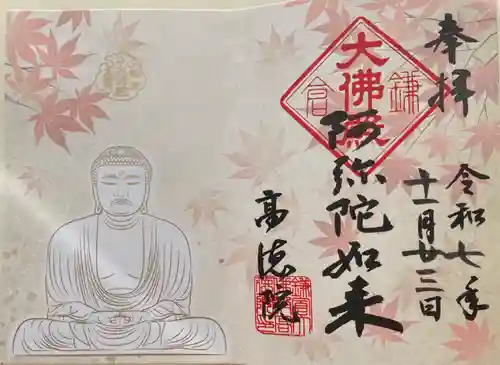 奉拝
令和七年
十一月廿三日
鎌倉
大佛殿
阿弥陀如来
高徳院